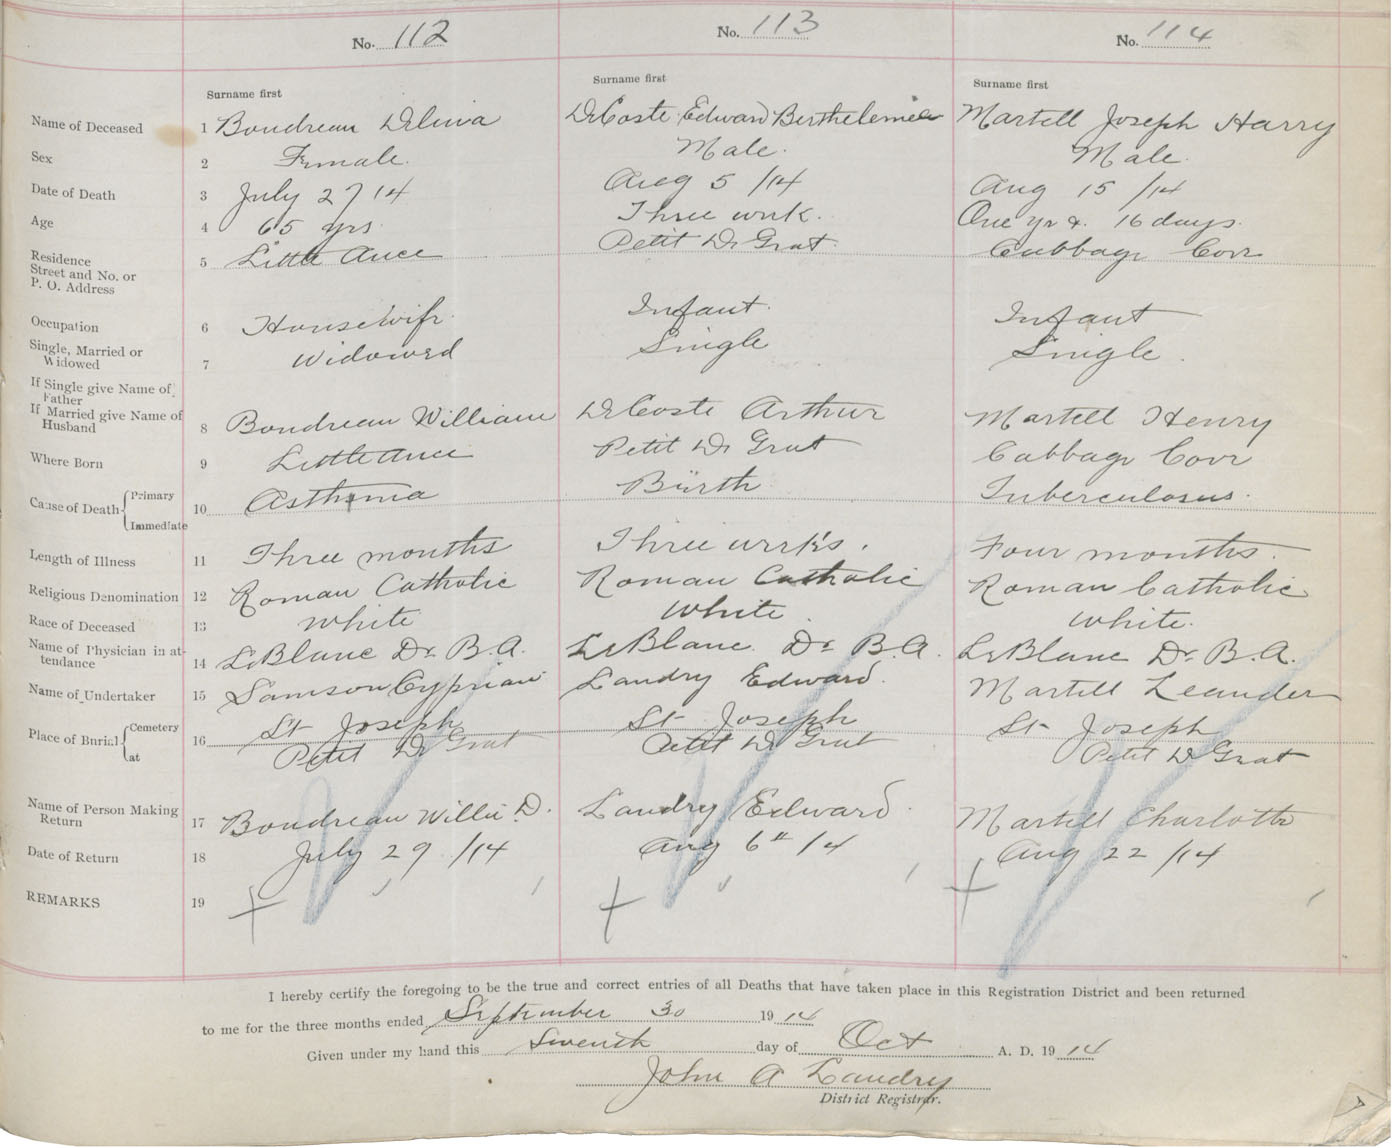 No. 112 No. 113 No. 114
Surname first Surname first Surname first
Name of Deceased 1 Boudreau Delina DeCoste Edward Berthelemea Martell Joseph Harry
Sex 2 Female. Male. Male.
Date of Death 3 July 27 14 Aug 5 /14 Aug 15 /14
Age 4 65 yrs. Three week. One yr &. 16 days.
Residence 5 Little Ance Petit De Grat. Cabbage Cove
Street and No. or
P. O. Address
Occupation 6 Housewife. Infant. Infant
Single, Married or
Widowed 7 Widowed Single Single.
If Single give Name of
Father
If Married give Name of
Husband 8 Boudreau William DeCoste Arthur Martell Henry
Where Born 9 Little Ance Petit De Grat Cabbage Cove
Cause of Death { Primary
Immediate 10 Asthma Birth. Tuberculosus.
Length of Illness 11 Three months Three week's. Four months.
Religious Denomination 12 Roman Catholic Roman Catholic Roman Catholic
Race of Deceased 13 White White. White.
Name of Physician in at-
tendance 14 LeBlanc Dr. B.A. LeBlanc. Dr B.A. LeBlanc Dr. B.A.
Name of Undertaker 15 Samson Cyprian Landry Edward. Martell Leander
Place of Burial { Cemetery 16 St Joseph St Joseph St Joseph
at Petit De Grat Petit De Grat Petit De Grat
Name of Person Making
Return 17 Boudreau Willie D. Landry Edward. Martell Charlotte
Date of Return 18 July 29 /14 Aug 6th /14 Aug 22 /14
REMARKS 19
I hereby certify the foregoing to be the true and correct entries of all Deaths that have taken place in this Registration District and been returned
to me for the three months ended September 30 19 14
Given under my hand this Seventh day of Oct A. D. 19 14
John A Landry
District Registrar.